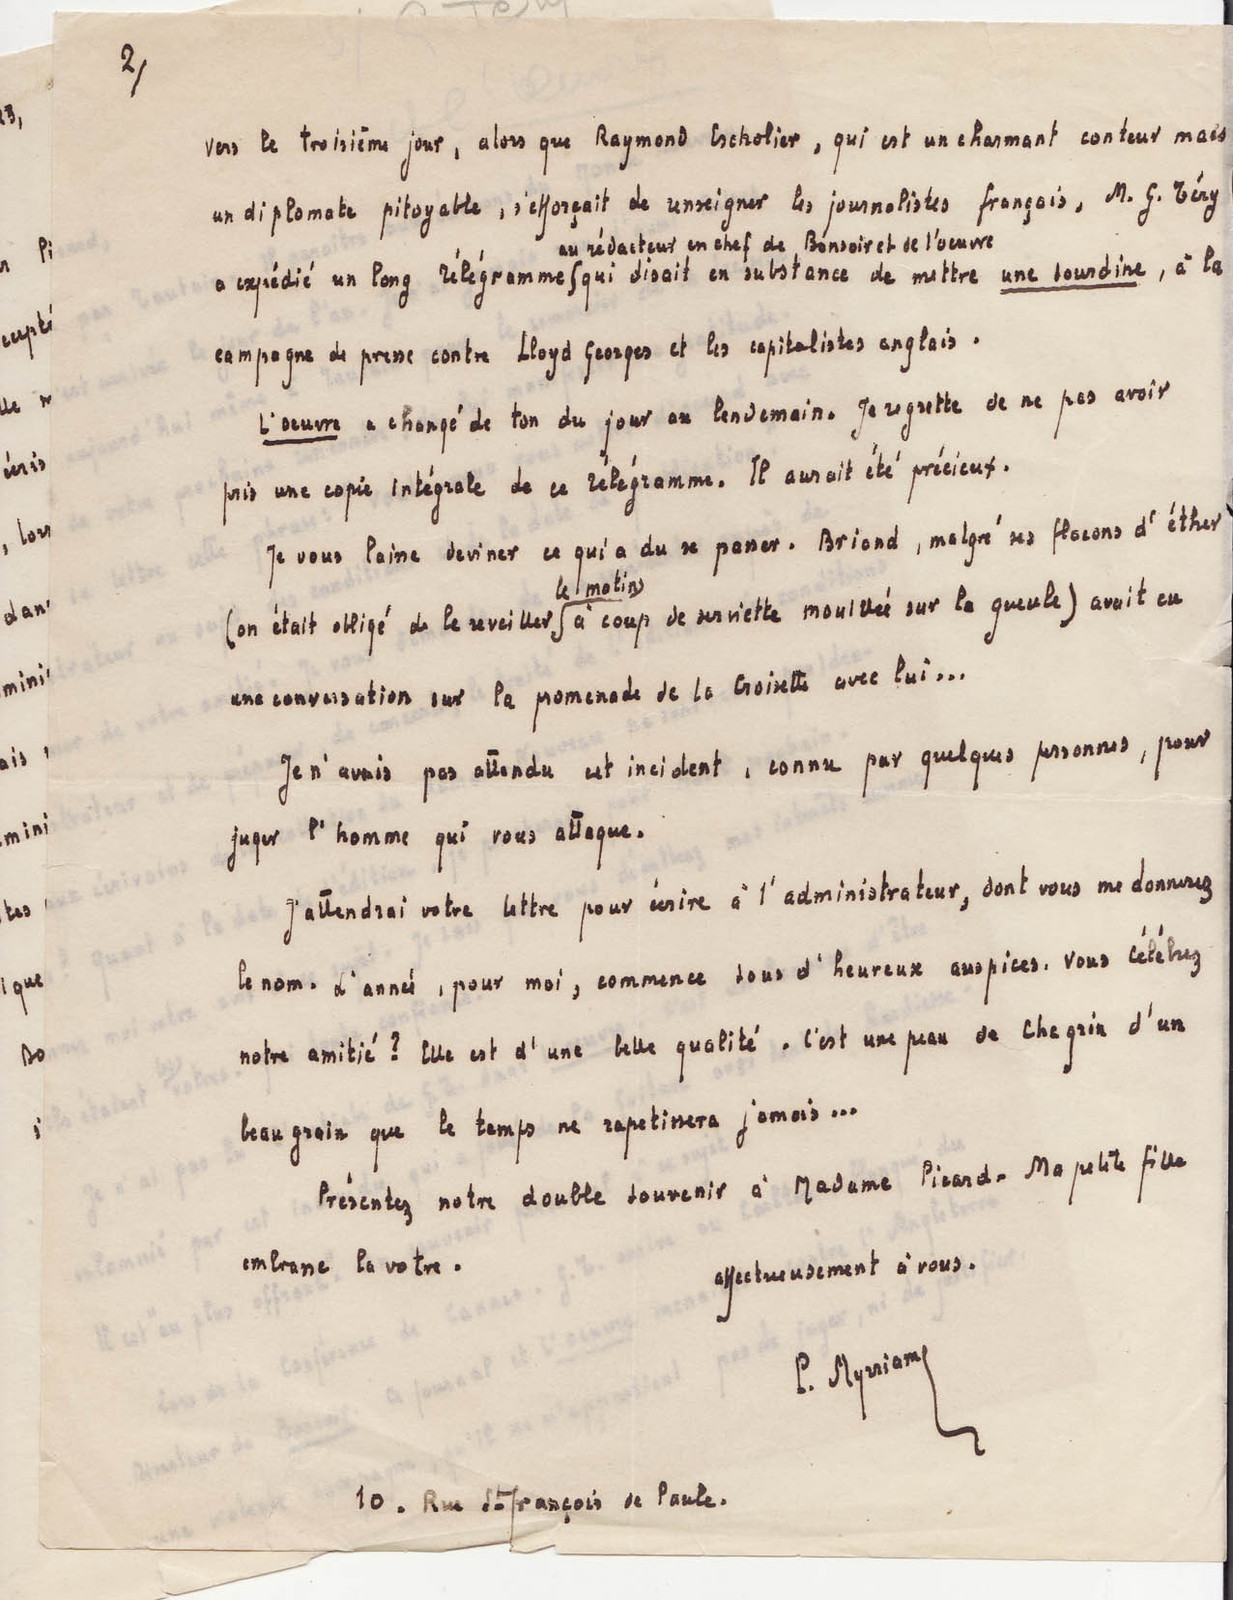 2/
vers le troisième jour, alors que Raymond Escholier, qui est un charmant conteur mais
un diplomate pitoyable, s'efforçait de renseigner les journalistes français, M. G. Téry
au rédacteur en chef de Bonsoir et de l'oeuvre
a expédié un long télégramme qui disait en substance de mettre une sourdine, à la
campagne de presse contre Lloyd Georges et les capitalistes anglais.
L'oeuvre a changé de ton du jour au lendemain. Je regrette de ne pas avoir
pris une copie intégrale de ce télégramme. Il aurait été précieux.
Je vous laisse deviner ce qui a du se passer. Briand, malgré ses flacons d'éther
le matin
(on était obligé de le reveiller à coup de serviette mouillée sur la gueule) avait eu
une conversation sur la promenade de la Croisette avec lui...
Je n'avais pas attendu cet incident, connu par quelques personnes, pour
juger l'homme qui vous attaque.
J'attendrai votre lettre pour écrire à l'administrateur, dont vous me donnerez
le nom. L'année, pour moi, commence sous d'heureux auspices. Vous célébrez
notre amitié? Elle est d'une belle qualité. C'est une peau de chagrin d'un
beau grain que le temps ne rapetissera jamais...
Présentez notre double souvenir à Madame Picard. Ma petite fille
embrasse la votre.
affectueusement à vous.
P. Myrriam
10. Rue St François de Paule.